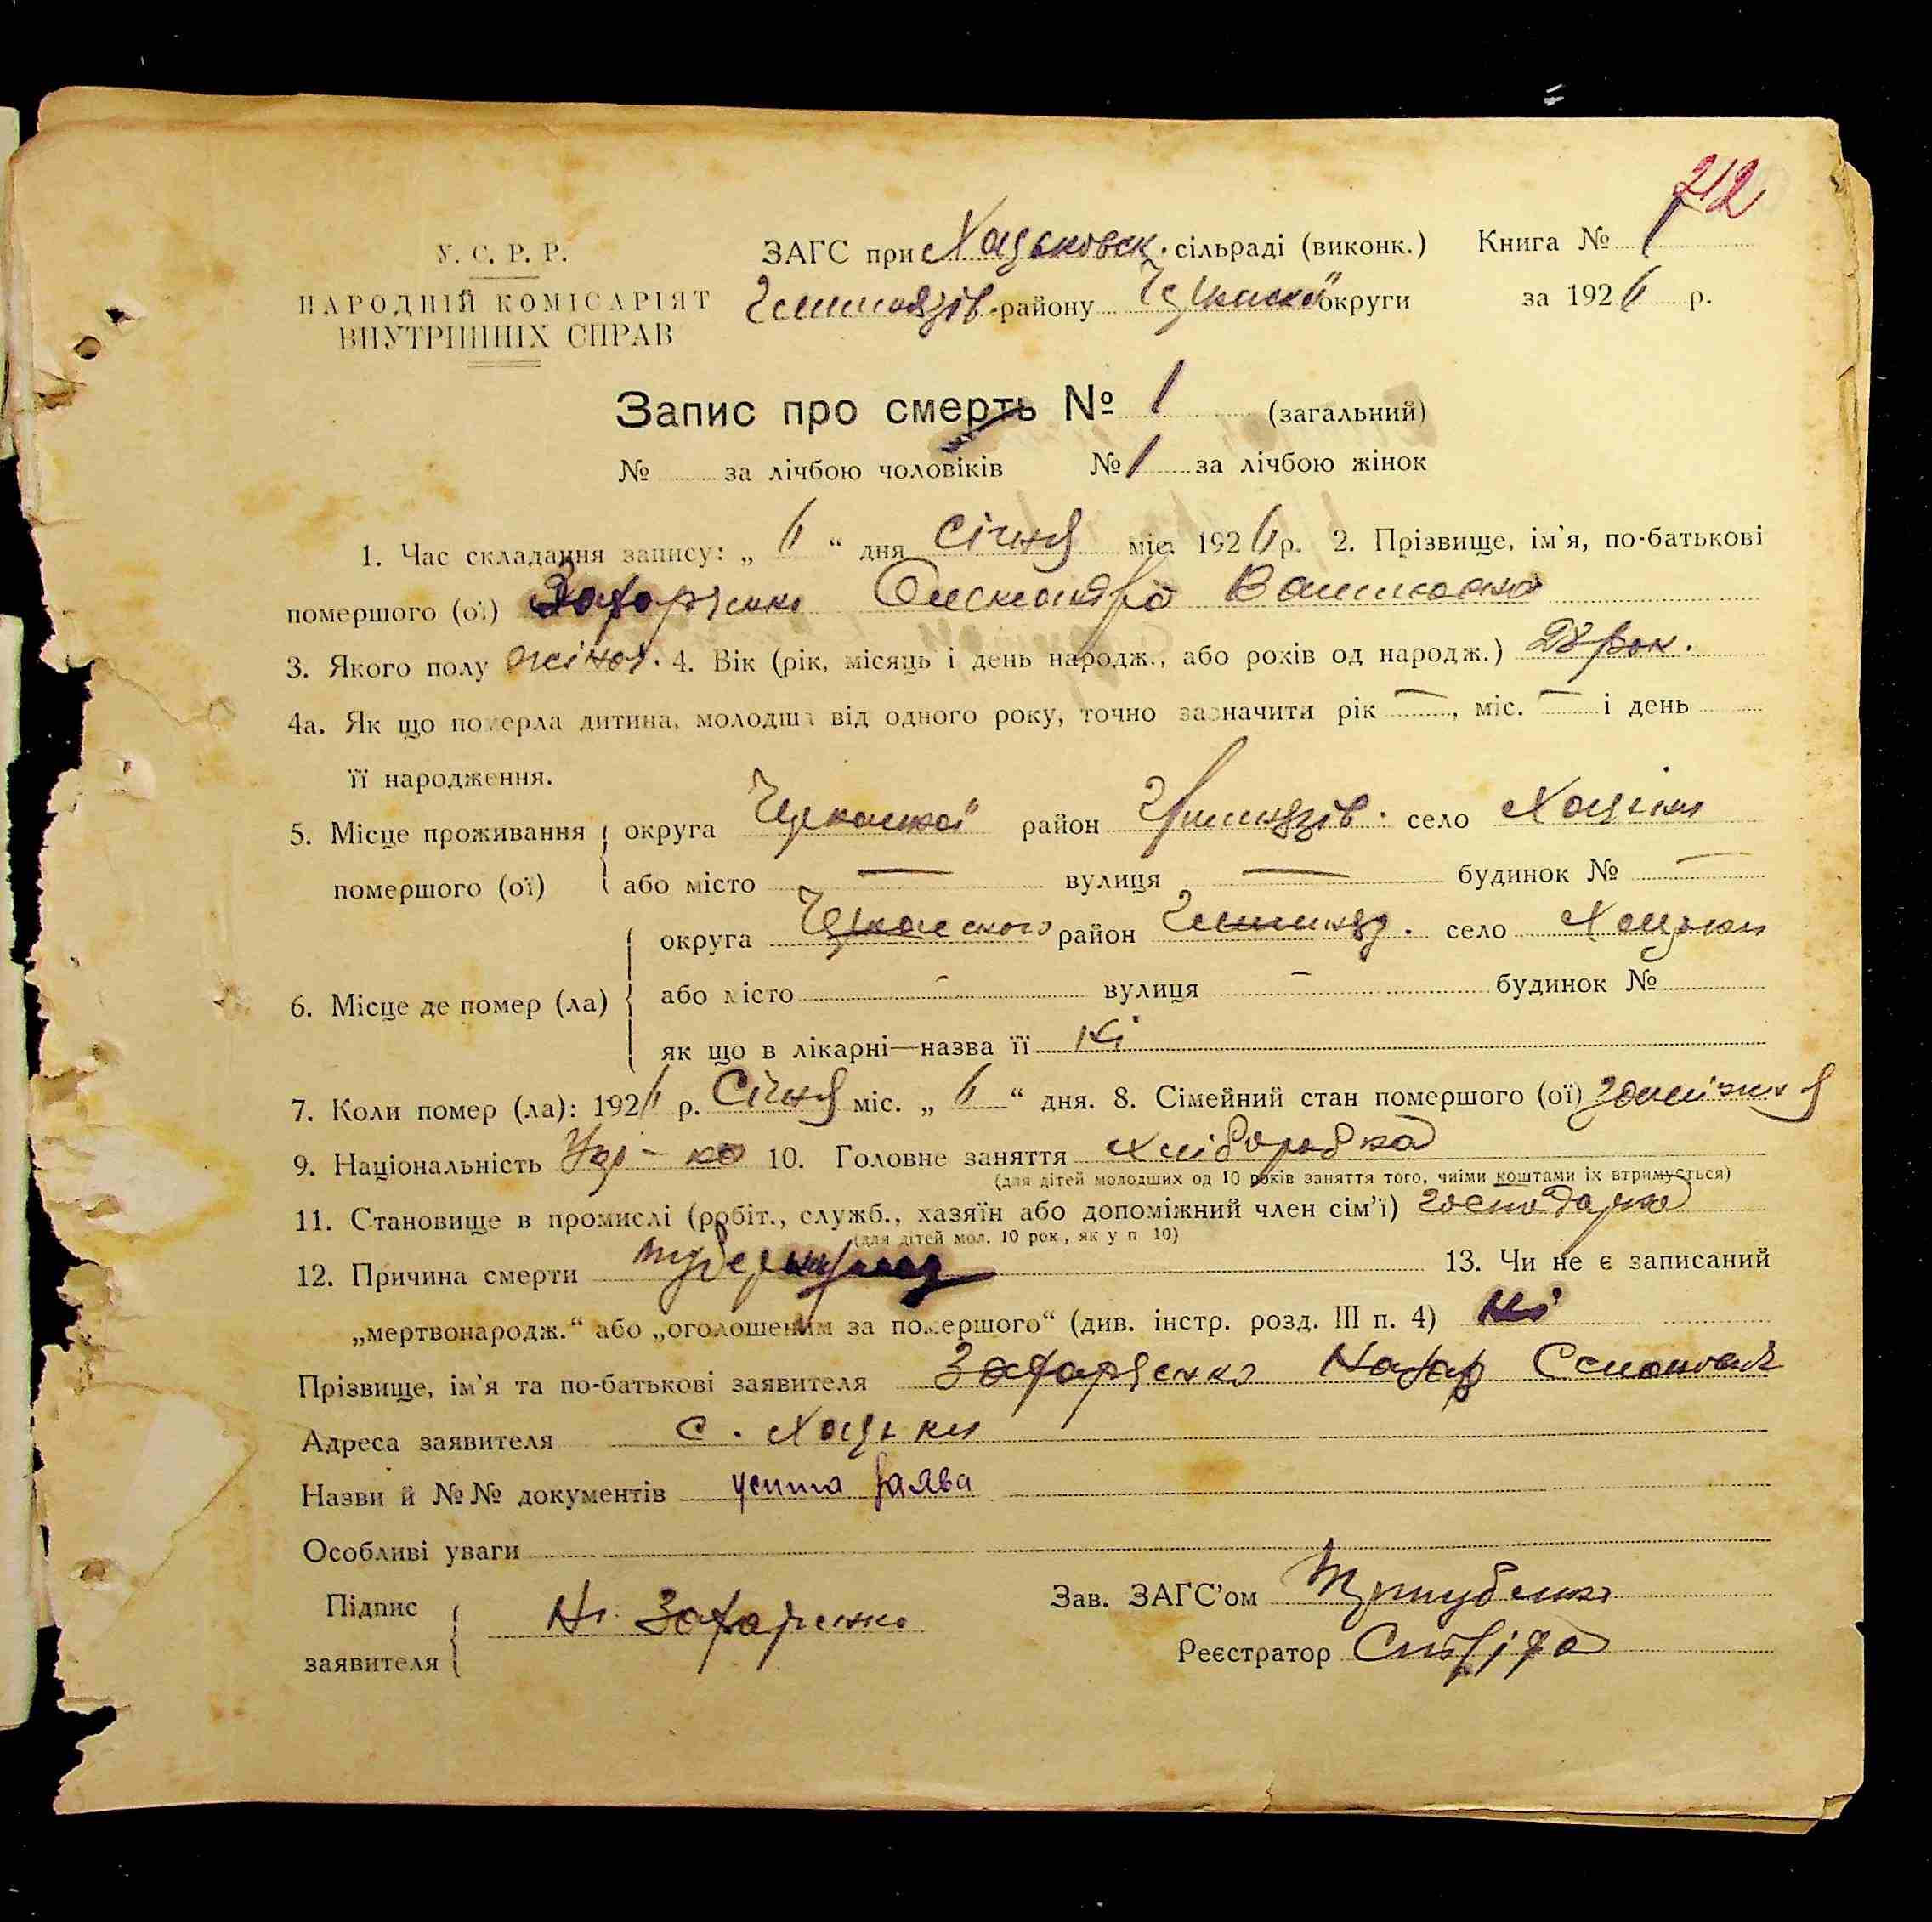 712
У. С. Р. Р.
НАРОДНІЙ КОМІСАРІЯТ
ВНУТРІШНІХ СПРАВ
ЗАГС при Хацьковск. сільраді (виконк.) Книга № 1
району Черкаськ. округи за 1926 р.
Запис про смерть № 1 (загальний)
№ за лічбою чоловіків № 1 за лічбою жінок
1. Час складання запису: „ 6 “ дня Січня міс. 1926 р. 2. Прізвище, ім'я, по-батькові
помершого (ої) Захарченко Олександра
3. Якого полу жіноч. 4. Вік (рік, місяць і день народж., або років од народж.) 28 рок.
4а. Як що померла дитина, молодша від одного року, точно зазначити рік —, міс. — і день
її народження.
5. Місце проживання округа Черкаської район село Хацьки
помершого (ої) або місто — вулиця — будинок № —
округа Черкаського район село Хацьки
6. Місце де помер (ла) або місто - вулиця - будинок №
як що в лікарні—назва її Ні
7. Коли помер (ла): 1926 р. Січня міс. „ 6 “ дня. 8. Сімейний стан помершого (ої) замізжня
9. Національність Укр-ка 10. Головне заняття хліборобка
(для дітей молодших од 10 років заняття того, чиїми коштами їх втримується)
11. Становище в промислі (робіт., служб., хазяїн або допоміжний член сім'ї) господарка
(для дітей мол. 10 рок, як у п 10)
12. Причина смерти туберкульоз 13. Чи не є записаний
„мертвонародж.“ або „оголошеним за помершого“ (див. інстр. розд. III п. 4) Ні
Прізвище, ім'я та по-батькові заявителя Захарченко Назар Семенович
Адреса заявителя с. Хацьки
Назви й №№ документів усина заява
Особливі уваги
Підпис
заявителя Н. Захарченко
Зав. ЗАГС'ом
Реєстратор